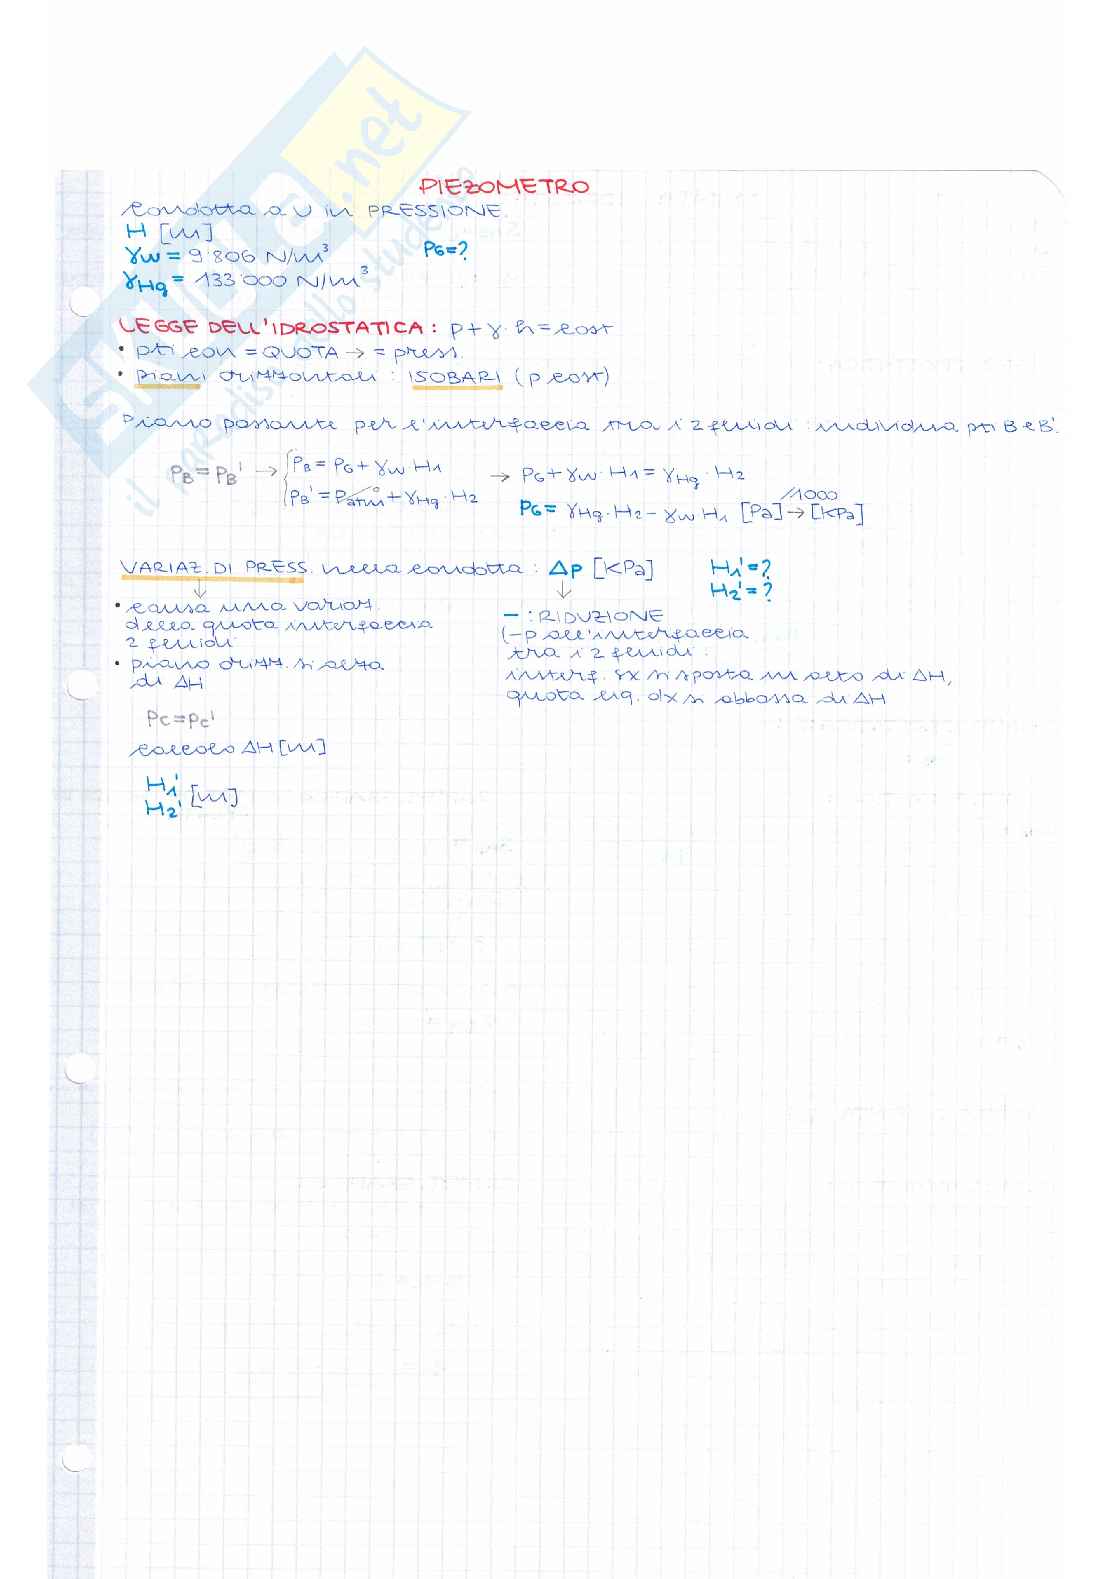 PIEZOMETRO
condotta a U in PRESSIONE.
H [m]
γw = 9'806 N/m³
PG=?
γHg = 133'000 N/m³
LEGGE DELL'IDROSTATICA: p+γ·h=cost
• pti con = QUOTA → = press.
• piani orizzontali: ISOBARI (p cost)
Piano passante per l'interfaccia tra i 2 fluidi: individua pti B e B'.
PB = PB' → { PB = PG + γw·H1
PB' = Patm⁰ + γHg·H2
→ PG + γw·H1 = γHg·H2
PG = γHg·H2 - γw H1 [Pa] → [KPa]
/1000
VARIAZ. DI PRESS. nella condotta: Δp [KPa]
H1'=?
H2'=?
• causa una variaz.
della quota interfaccia
2 fluidi
• piano orizz. si alza
di ΔH
Pc=Pc'
calcolo ΔH [m]
H1'
H2' [m]
- : RIDUZIONE
(-p all'interfaccia
tra i 2 fluidi:
interf. sx si sposta in alto di ΔH,
quota liq. dx si abbassa di ΔH
SKUOLA.net
il paradiso dello studente